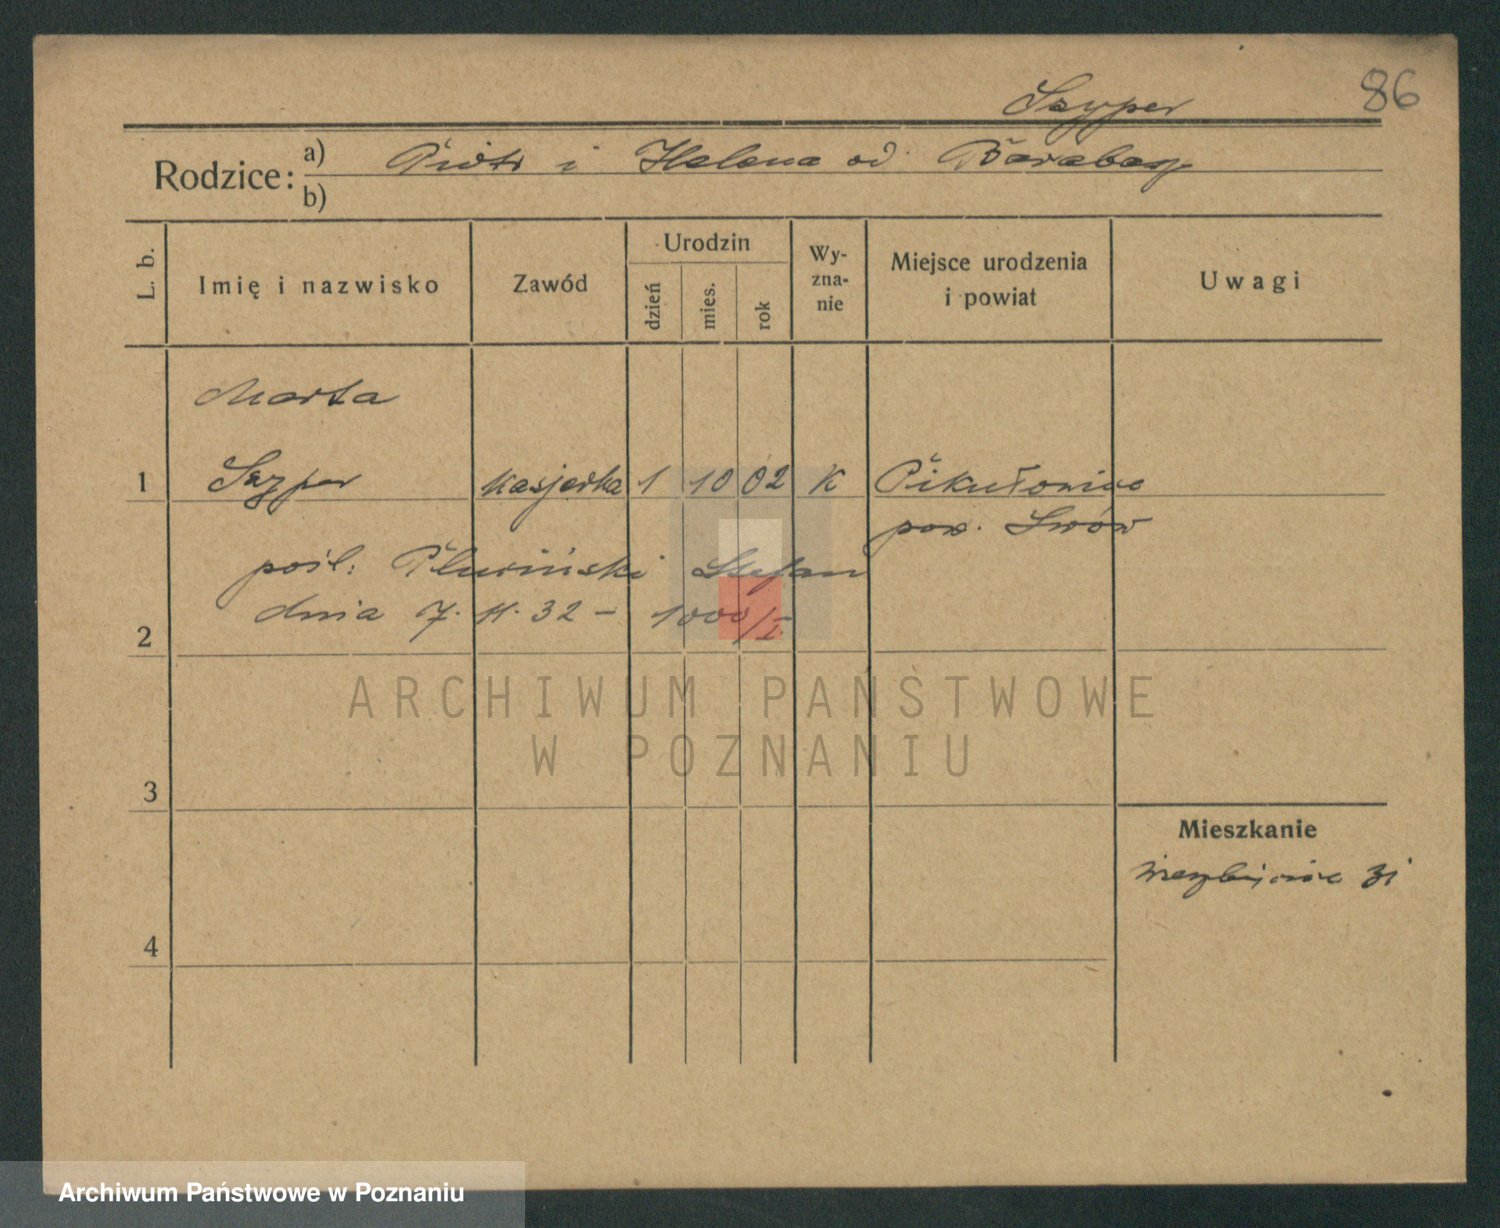 Szyper
86
Rodzice: a) Piotr i Helena od. Barabasz
b)
L. b.
Imię i nazwisko
Zawód
Urodzin
dzień
mies.
rok
Wy-
zna-
nie
Miejsce urodzenia
i powiat
Uwagi
Marta
1 Szyper kasjerka 1 10 02 K Pikułowice
pow. Lwów
pośl: Pluciński Stefan
dnia 7. 11. 32 - 1000/I
2
ARCHIWUM PAŃSTWOWE
W POZNANIU
3
Mieszkanie
31
4
Archiwum Państwowe w Poznaniu